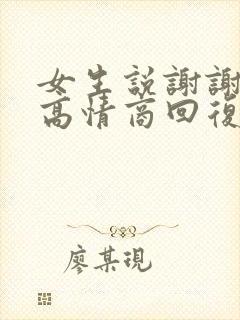 女生説謝謝
高情商回復
廖某現